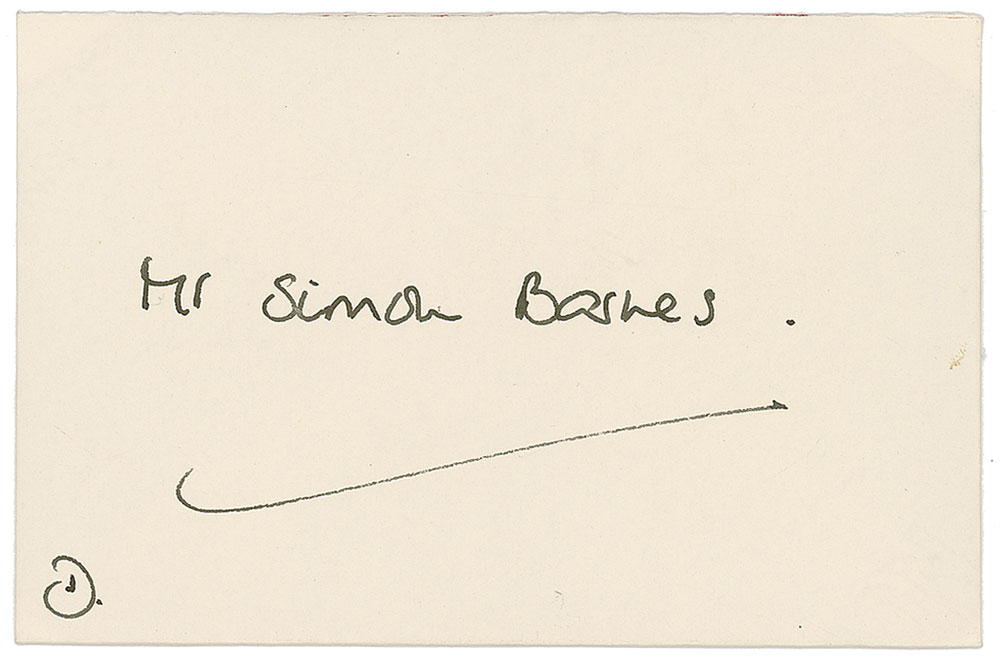 Mr Simon Barnes .